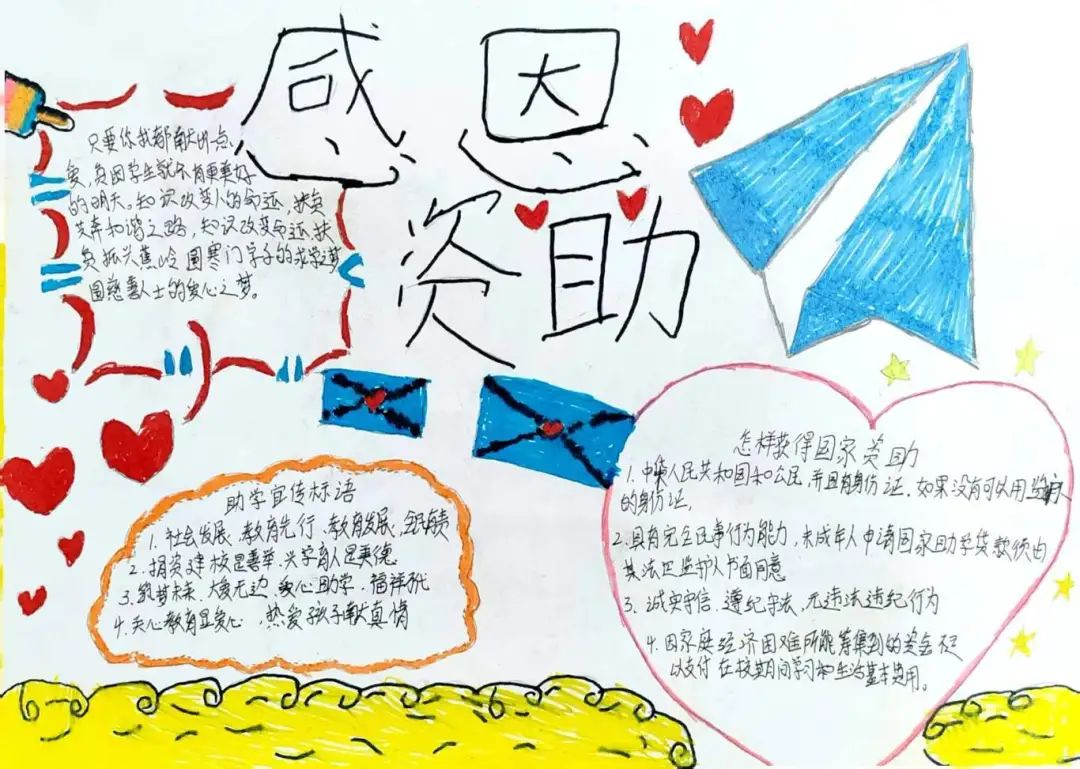 感恩
资助
只要你我都献出一点
爱,贫困学生就会有更美好
的明天。知识改变人的命运,扶贫
共奔和谐之路,知识改变命运,扶
贫振兴蕉岭圆寒门学子的求学梦
圆慈善人士的爱心之梦。
助学宣传标语
1. 社会发展、教育先行、教育发展、全民有责
2. 捐资建校是善举、兴学育人是美德
3. 筑梦未来、大爱无边、爱心助学、福祥
4. 关心教育显爱心,热爱孩子献真情
怎样获得国家资助
1. 中华人民共和国和公民,并且有身份证,如果没有可以用监护人
的身份证,
2. 具有完全民事行为能力,未成年人申请国家助学贷款须由
其法定监护人书面同意
3. 诚实守信,遵纪守法,无违法违纪行为
4. 因家庭经济困难所能筹集到的资金不足
以支付在校期间学习和生活基本费用。